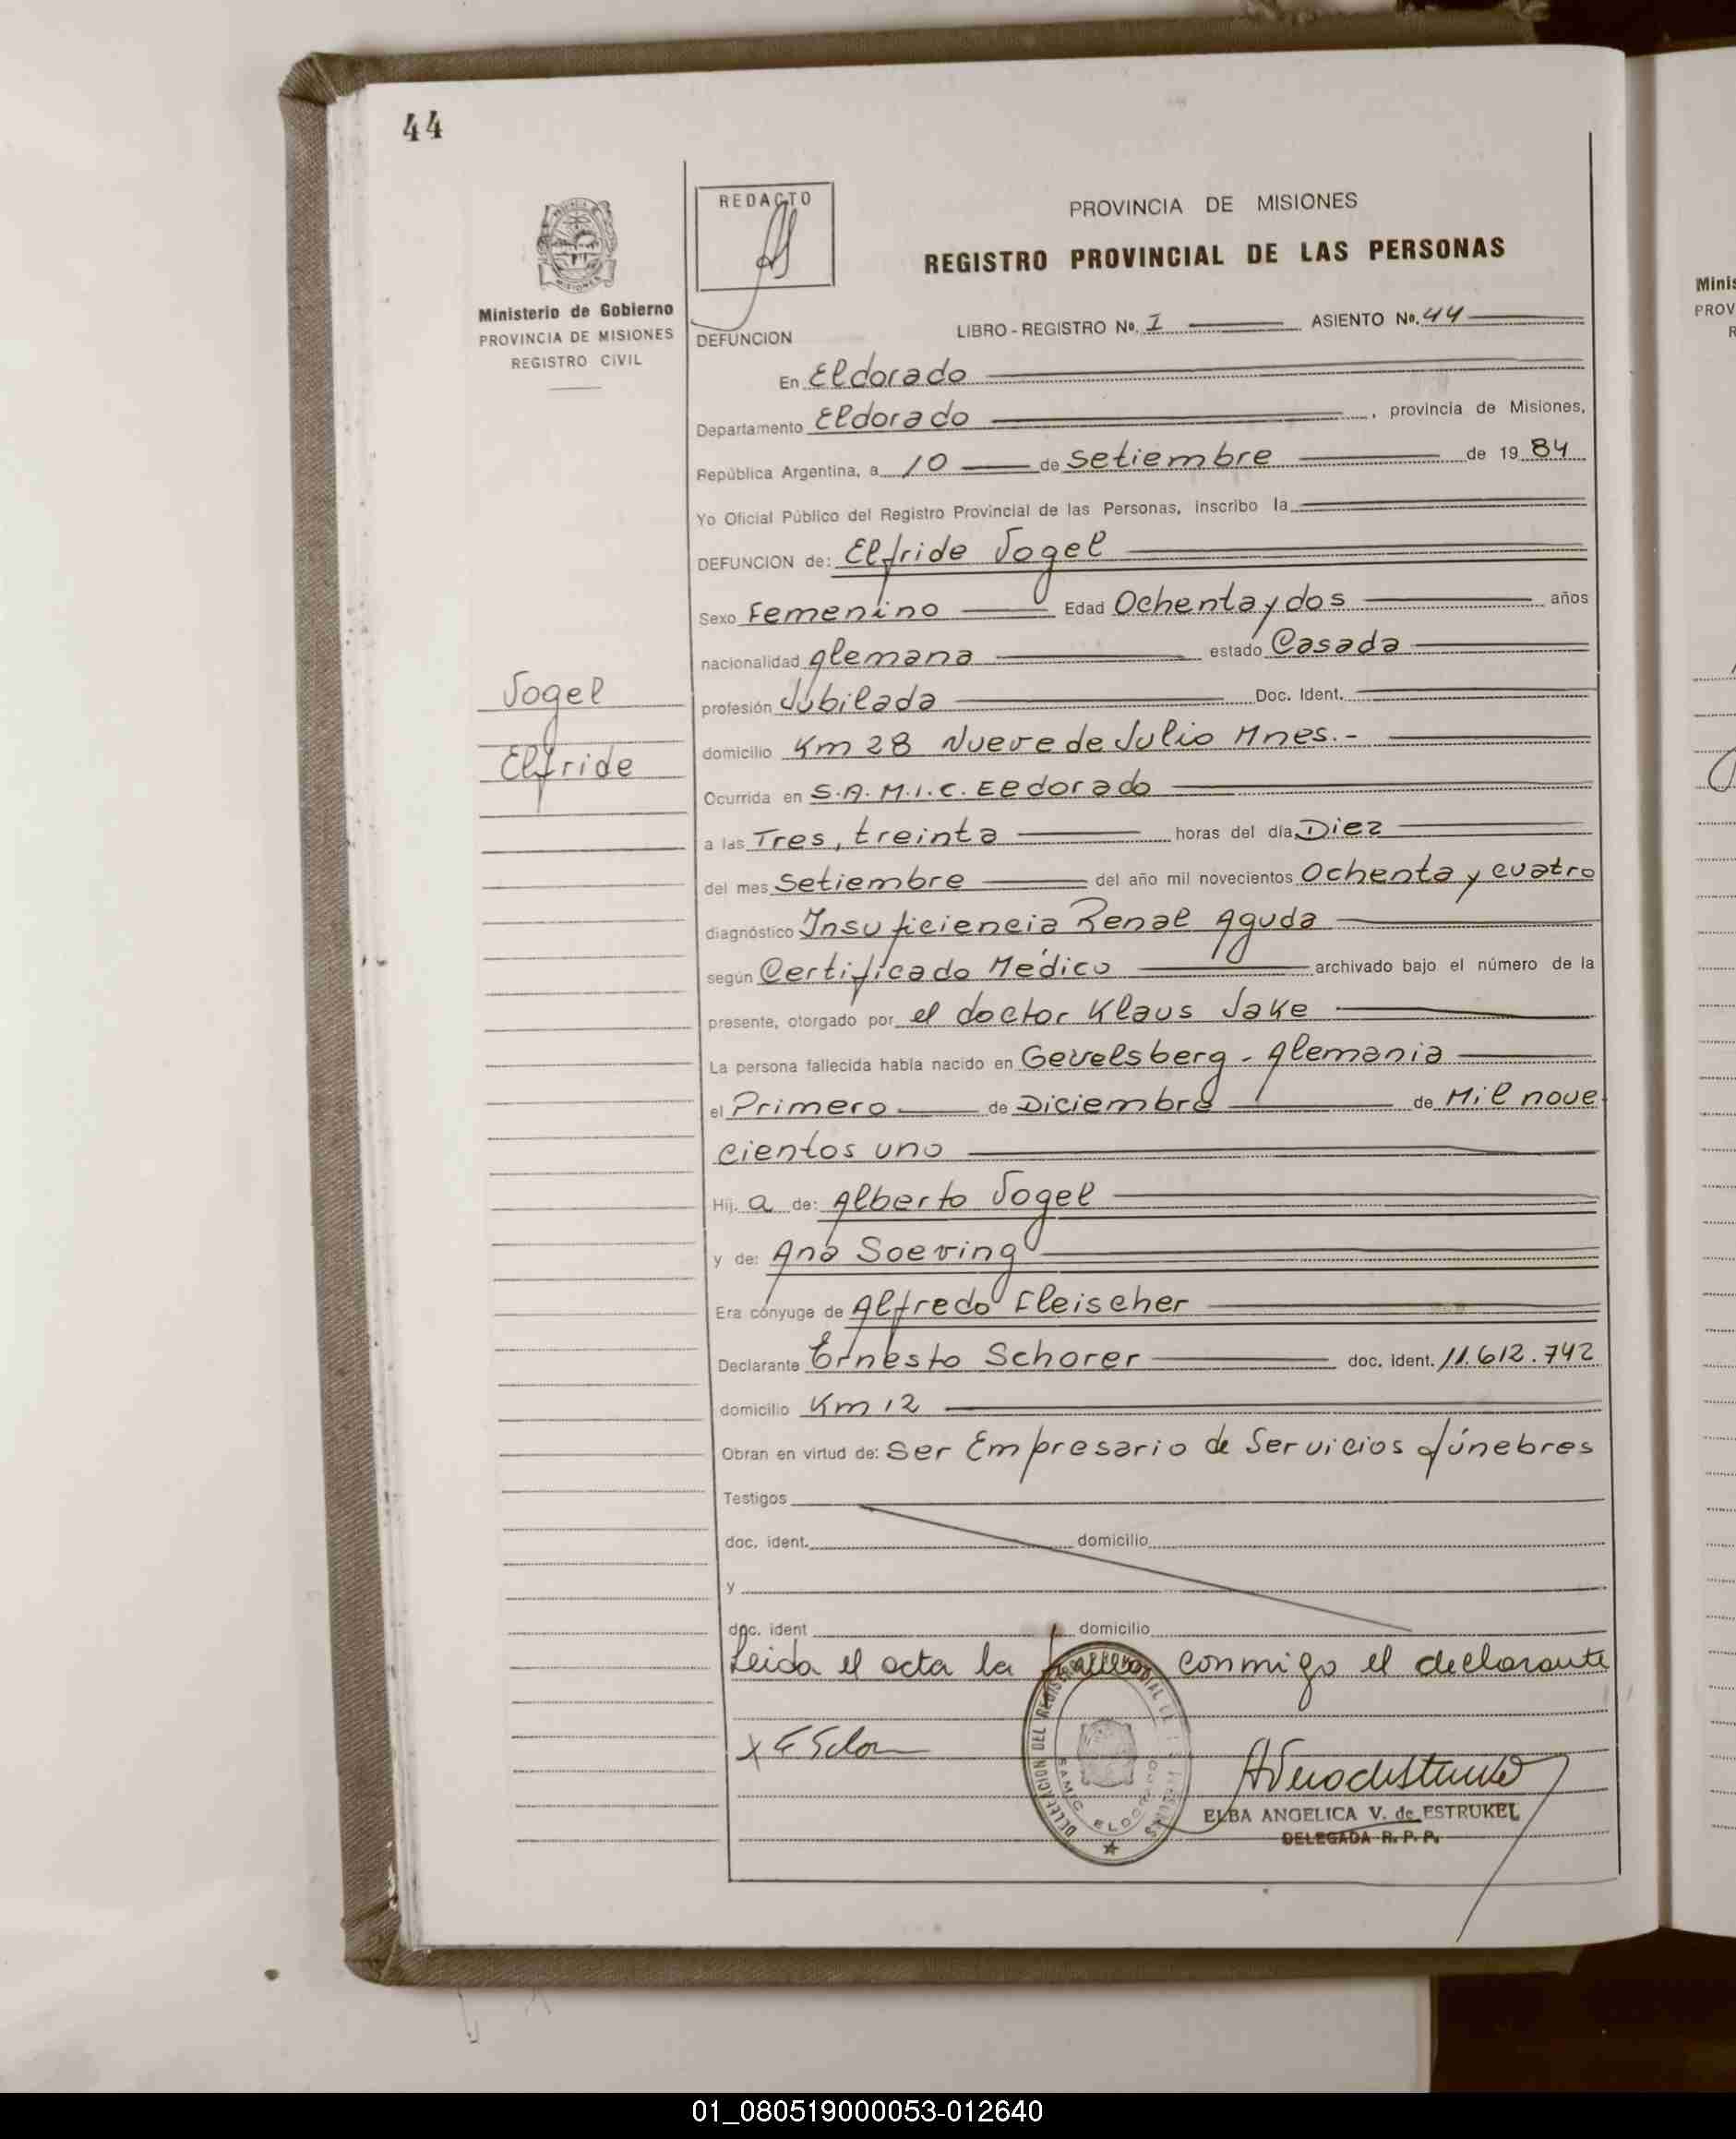 44
REDACTO
PROVINCIA DE MISIONES
REGISTRO PROVINCIAL DE LAS PERSONAS
Ministerio de Gobierno
PROVINCIA DE MISIONES
REGISTRO CIVIL
DEFUNCION
LIBRO - REGISTRO No. I ASIENTO No. 44
En Eldorado
Departamento Eldorado, provincia de Misiones,
República Argentina, a 10 de Setiembre de 19 84
Yo Oficial Público del Registro Provincial de las Personas, inscribo la
DEFUNCION de: Elfride Vogel
Sexo Femenino Edad Ochenta y dos años
nacionalidad Alemana estado Casada
Vogel
Elfride
profesión Jubilada Doc. Ident.
domicilio Km 28 Nueve de Julio Mnes. -
Ocurrida en S.A.M.I.C. Eldorado
a las Tres, treinta horas del día Diez
del mes Setiembre del año mil novecientos Ochenta y cuatro
diagnóstico Insuficiencia Renal Aguda
según Certificado Médico archivado bajo el número de la
presente, otorgado por el doctor Klaus Jake
La persona fallecida había nacido en Gevelsberg - Alemania
el Primero de Diciembre de Mil nove
cientos uno
Hij. a de: Alberto Vogel
y de: Ana Soeving
Era cónyuge de Alfredo Fleischer
Declarante Ernesto Schorer doc. ident. 11.612.742
domicilio Km 12
Obran en virtud de: Ser Empresario de Servicios fúnebres
Testigos
doc. ident. domicilio
y
doc. ident domicilio
Leida el acta la conmigo el declarante
DELEGACION DEL REGISTRO
SAMIC ELDORADO
ELBA ANGELICA V. de ESTRUKEL
DELEGADA R. P. P.
Minis
PROV
R
01_080519000053-012640